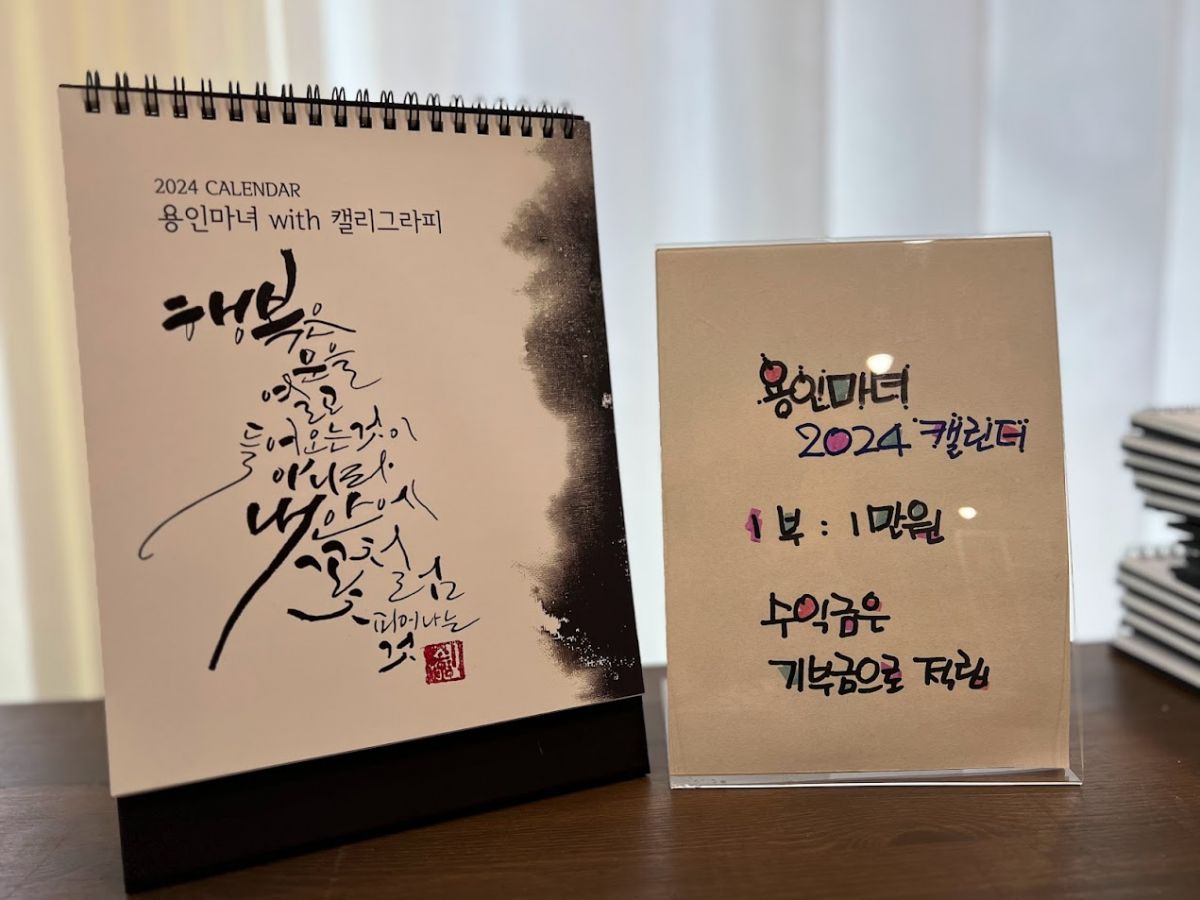 2024 CALENDAR
용인마녀 with 캘리그라피
행복은
문을
열고
들어오는것이
아니라
내안에
꽃처럼
피어나는
것
용인마녀
2024 캘린더
1부 : 1만원
수익금은
기부금으로 적립